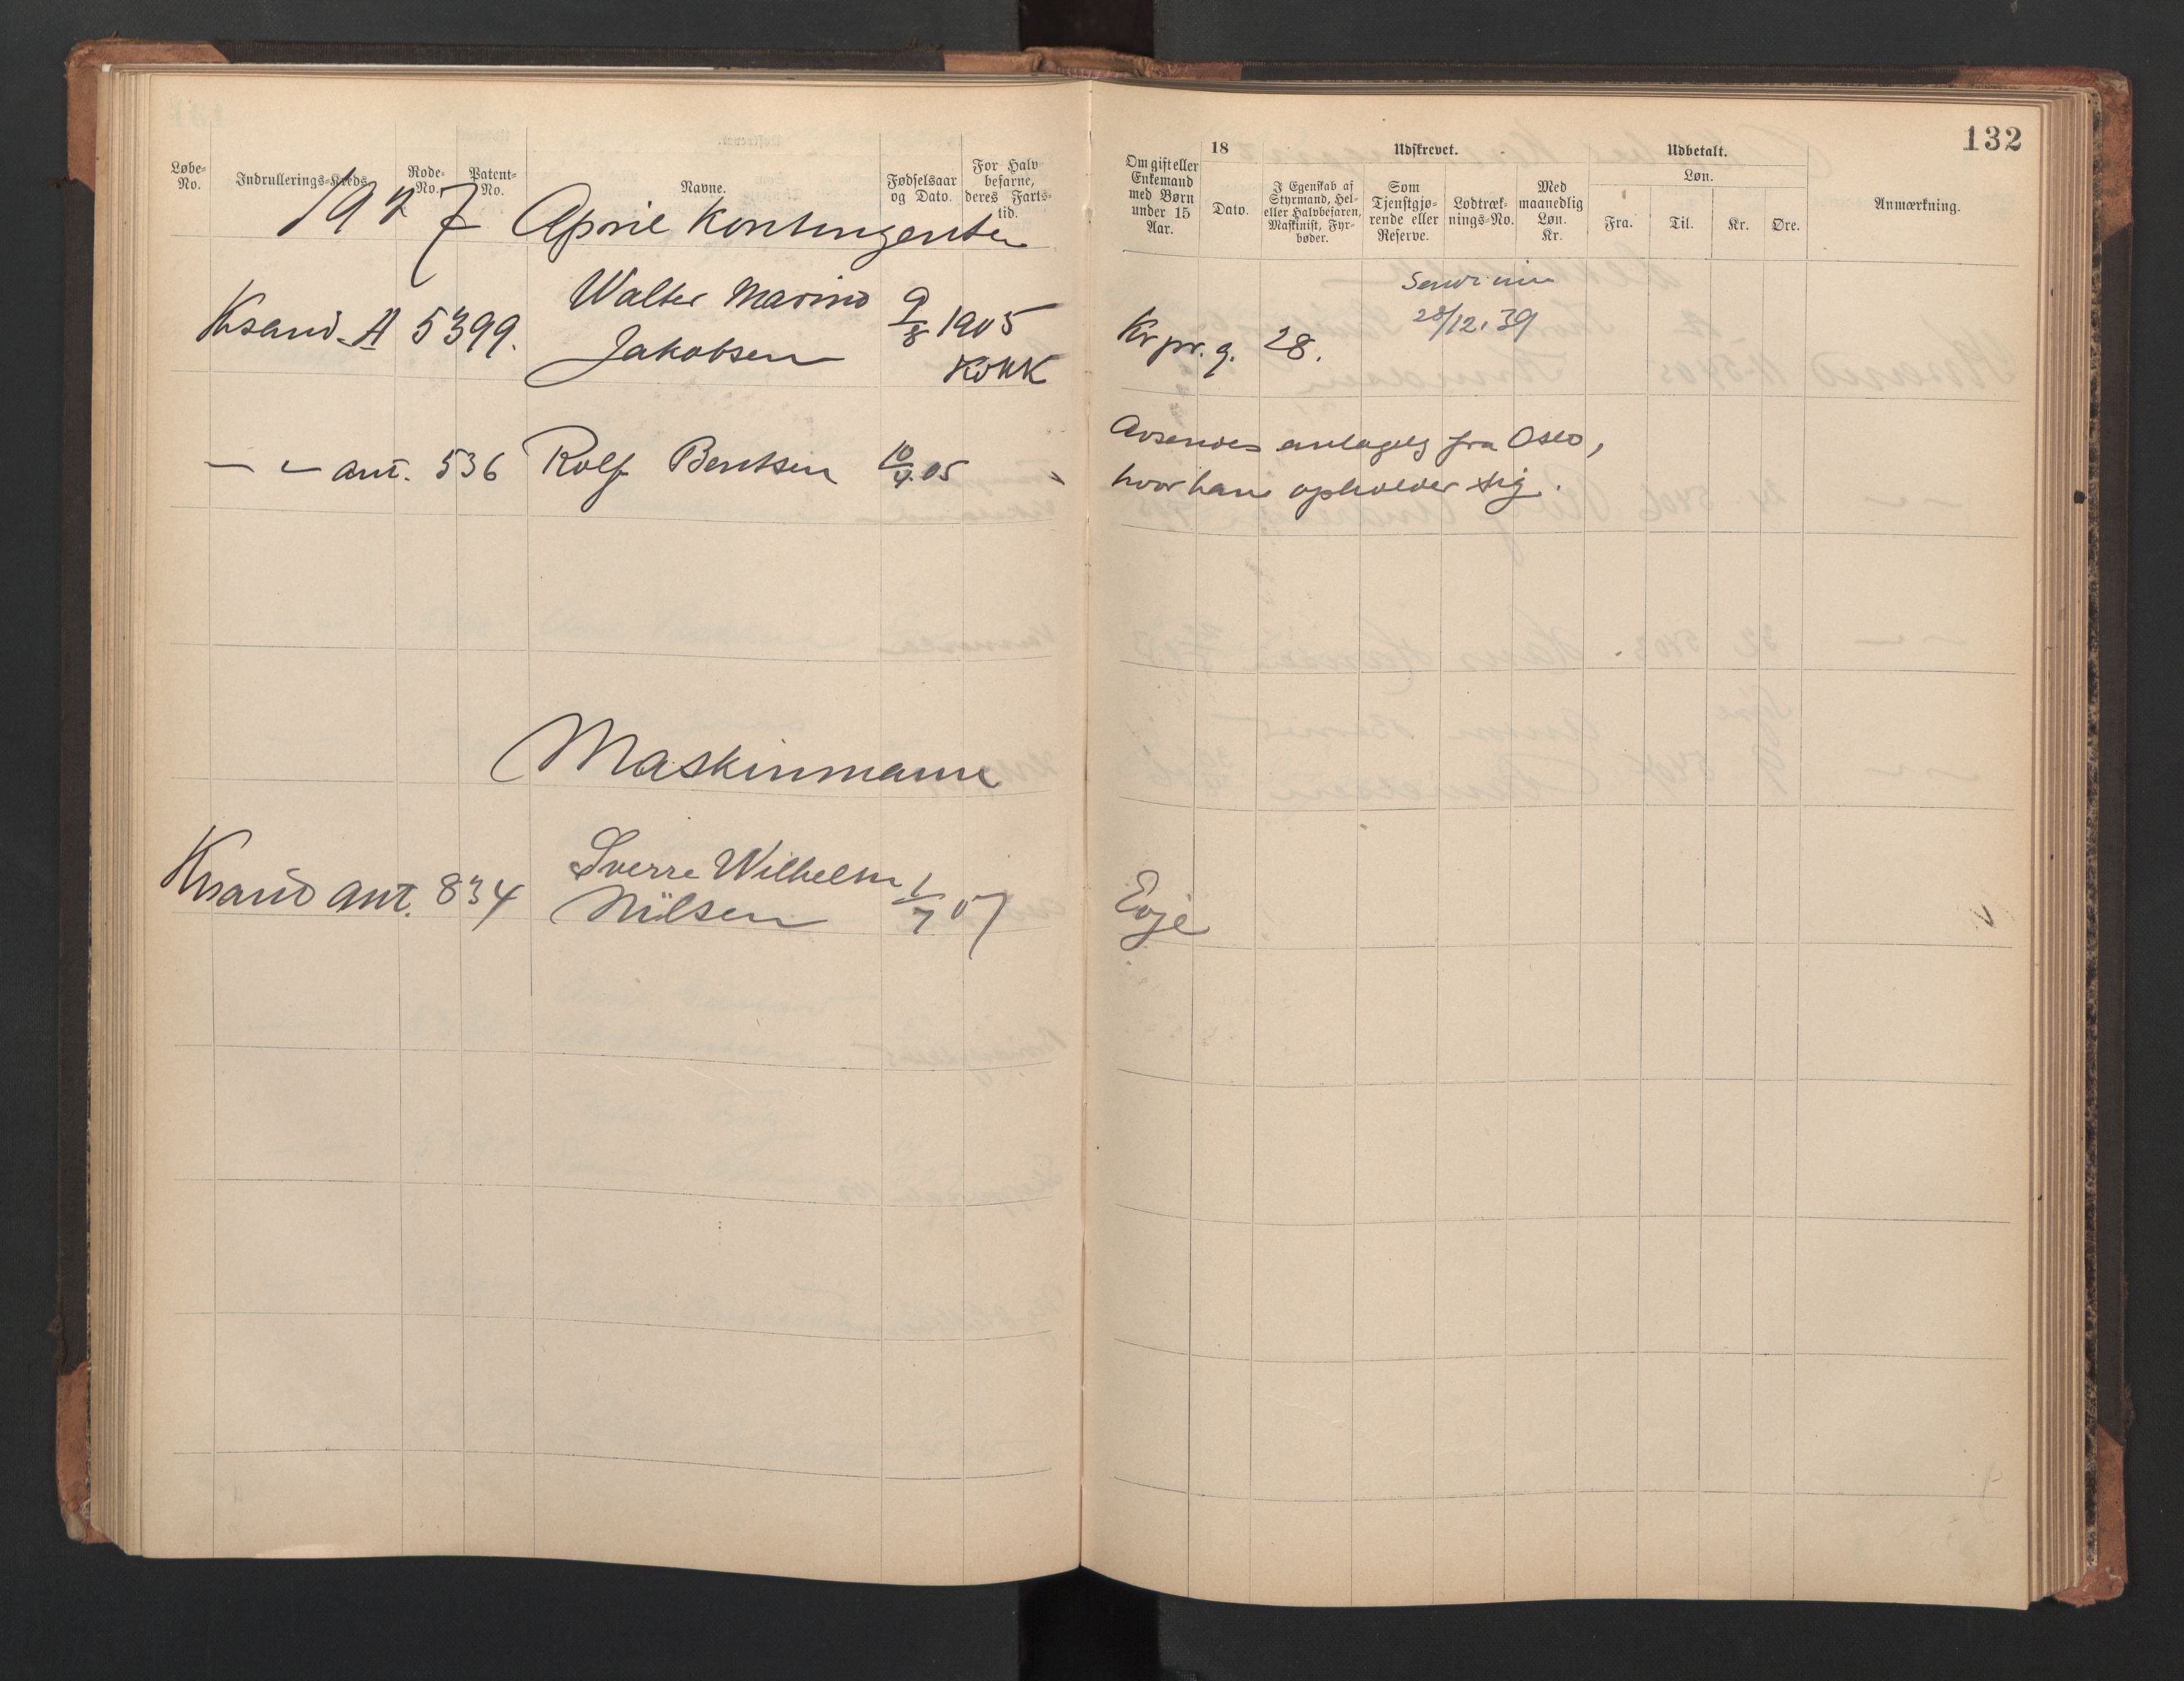 132
Løbe-No.
Indrullerings-Kreds.
Rode-No.
Patent-No.
Navne.
Fødselsaar og Dato.
For Halvbefarne, deres Fartstid.
Om gift eller Enkemand med Børn under 15 Aar.
18
Dato.
Udskrevet.
I Egenskab af Styrmand, Hel- eller Halvbefaren, Maskinist, Fyrbøder.
Som Tjenstgjørende eller Reserve.
Lodtræknings-No.
Med maanedlig Løn. Kr.
Udbetalt.
Løn.
Fra.
Til.
Kr.
Øre.
Anmærkning.
1927 April Kontingenten
Ksand. A 5399. Walter Marino Jakobsen 9/8 1905 KOKK
Kr pr. g. 28.
28/12.39
— ant. 536 Rolf Bentsen 10/4.05
Avsendes antagelg fra Oslo,
hvor han opholder sig.
Maskinmann
Ksand ant. 834 Sverre Wilhelm Nilsen 1/7 07
Evje